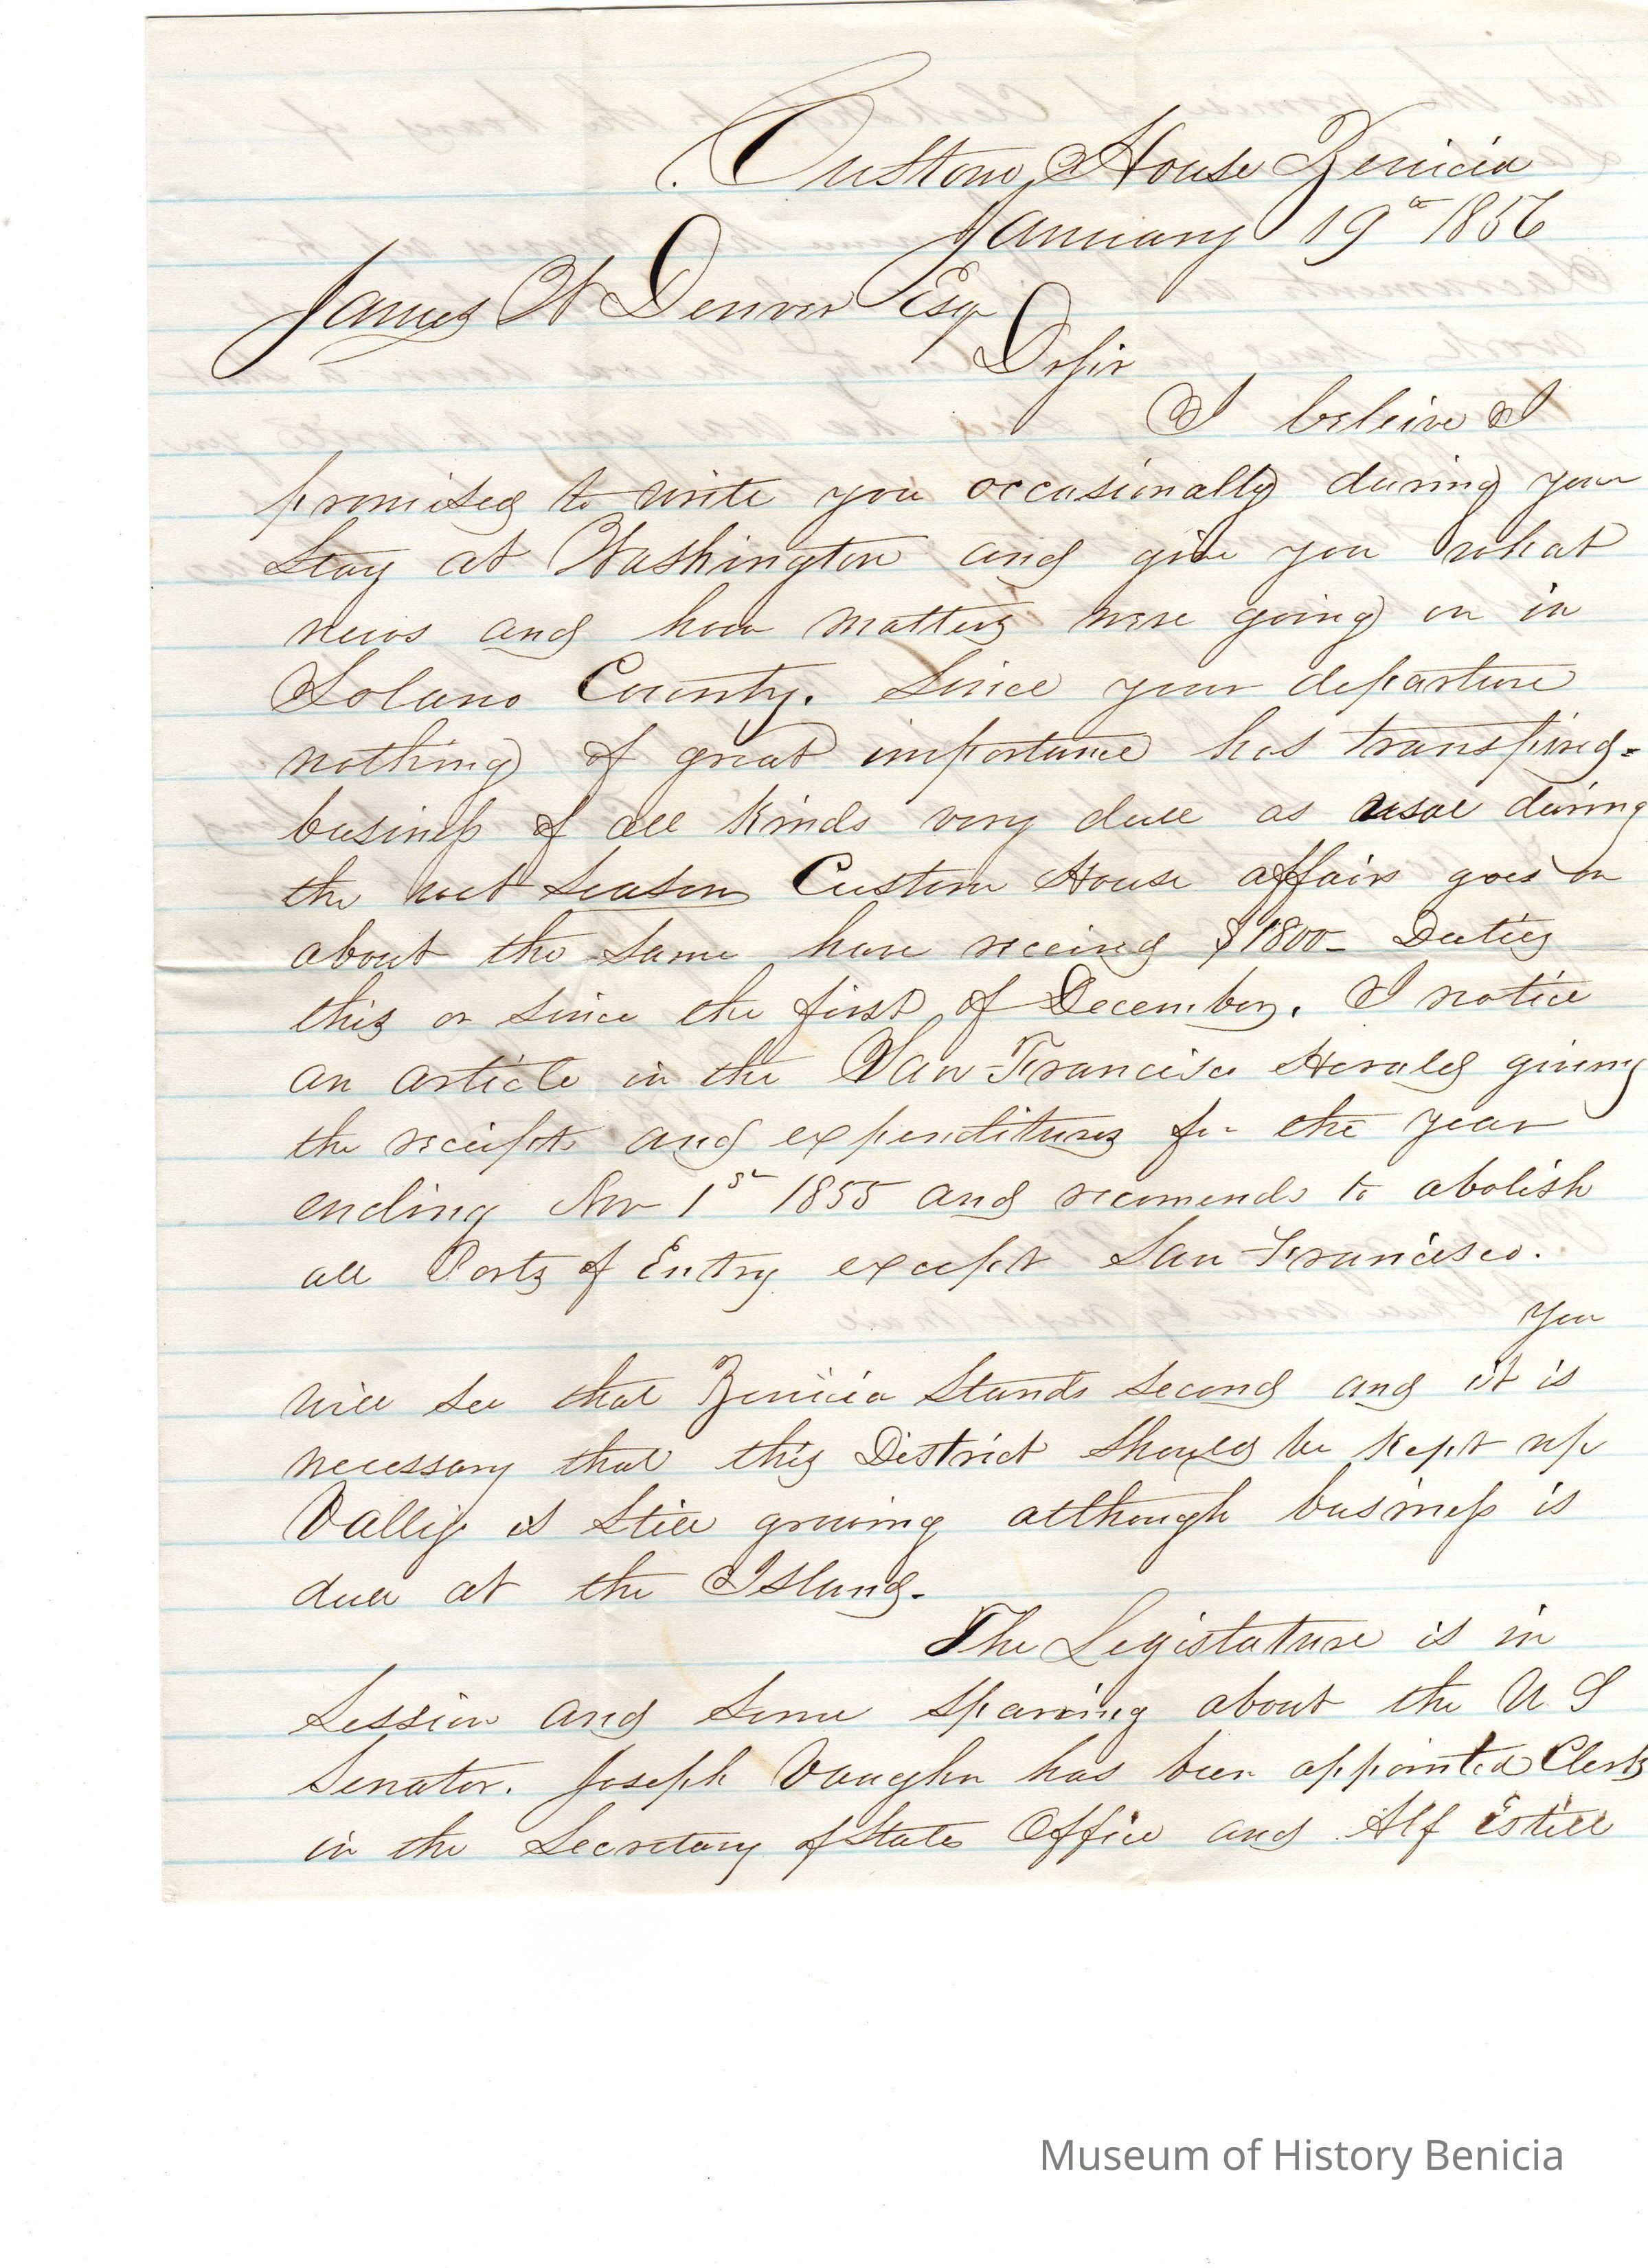 Custom House Benicia
January 19th 1856
James W Denver Esq
Dr Sir
I beleive I
promised to write you occasionally during your
Stay at Washington and give you what
news and how matters were going on in
Solano County. Since your departure
nothing of great importance has transpired.
business of all Kinds very dull as usal during
the wet Season Custom House affairs goes on
about the Same have received $1800- Duties
this or Since the first of December. I notice
an article in the San Francisco Herald giving
the receipts and expenditures for the Year
ending Nov 1st 1855 and recomends to abolish
all Ports of Entry except San Francisco.
You
will See that Benicia Stands Second and it is
necessary that this District Should be Kept up
Vallejo is Still growing although business is
dull at the Island.
The Legislature is in
Session and Some Sparring about the U S
Senator. Joseph Vaughn has been appointed Clerk
in the Secretary of State Office and Alf Estill
Museum of History Benicia